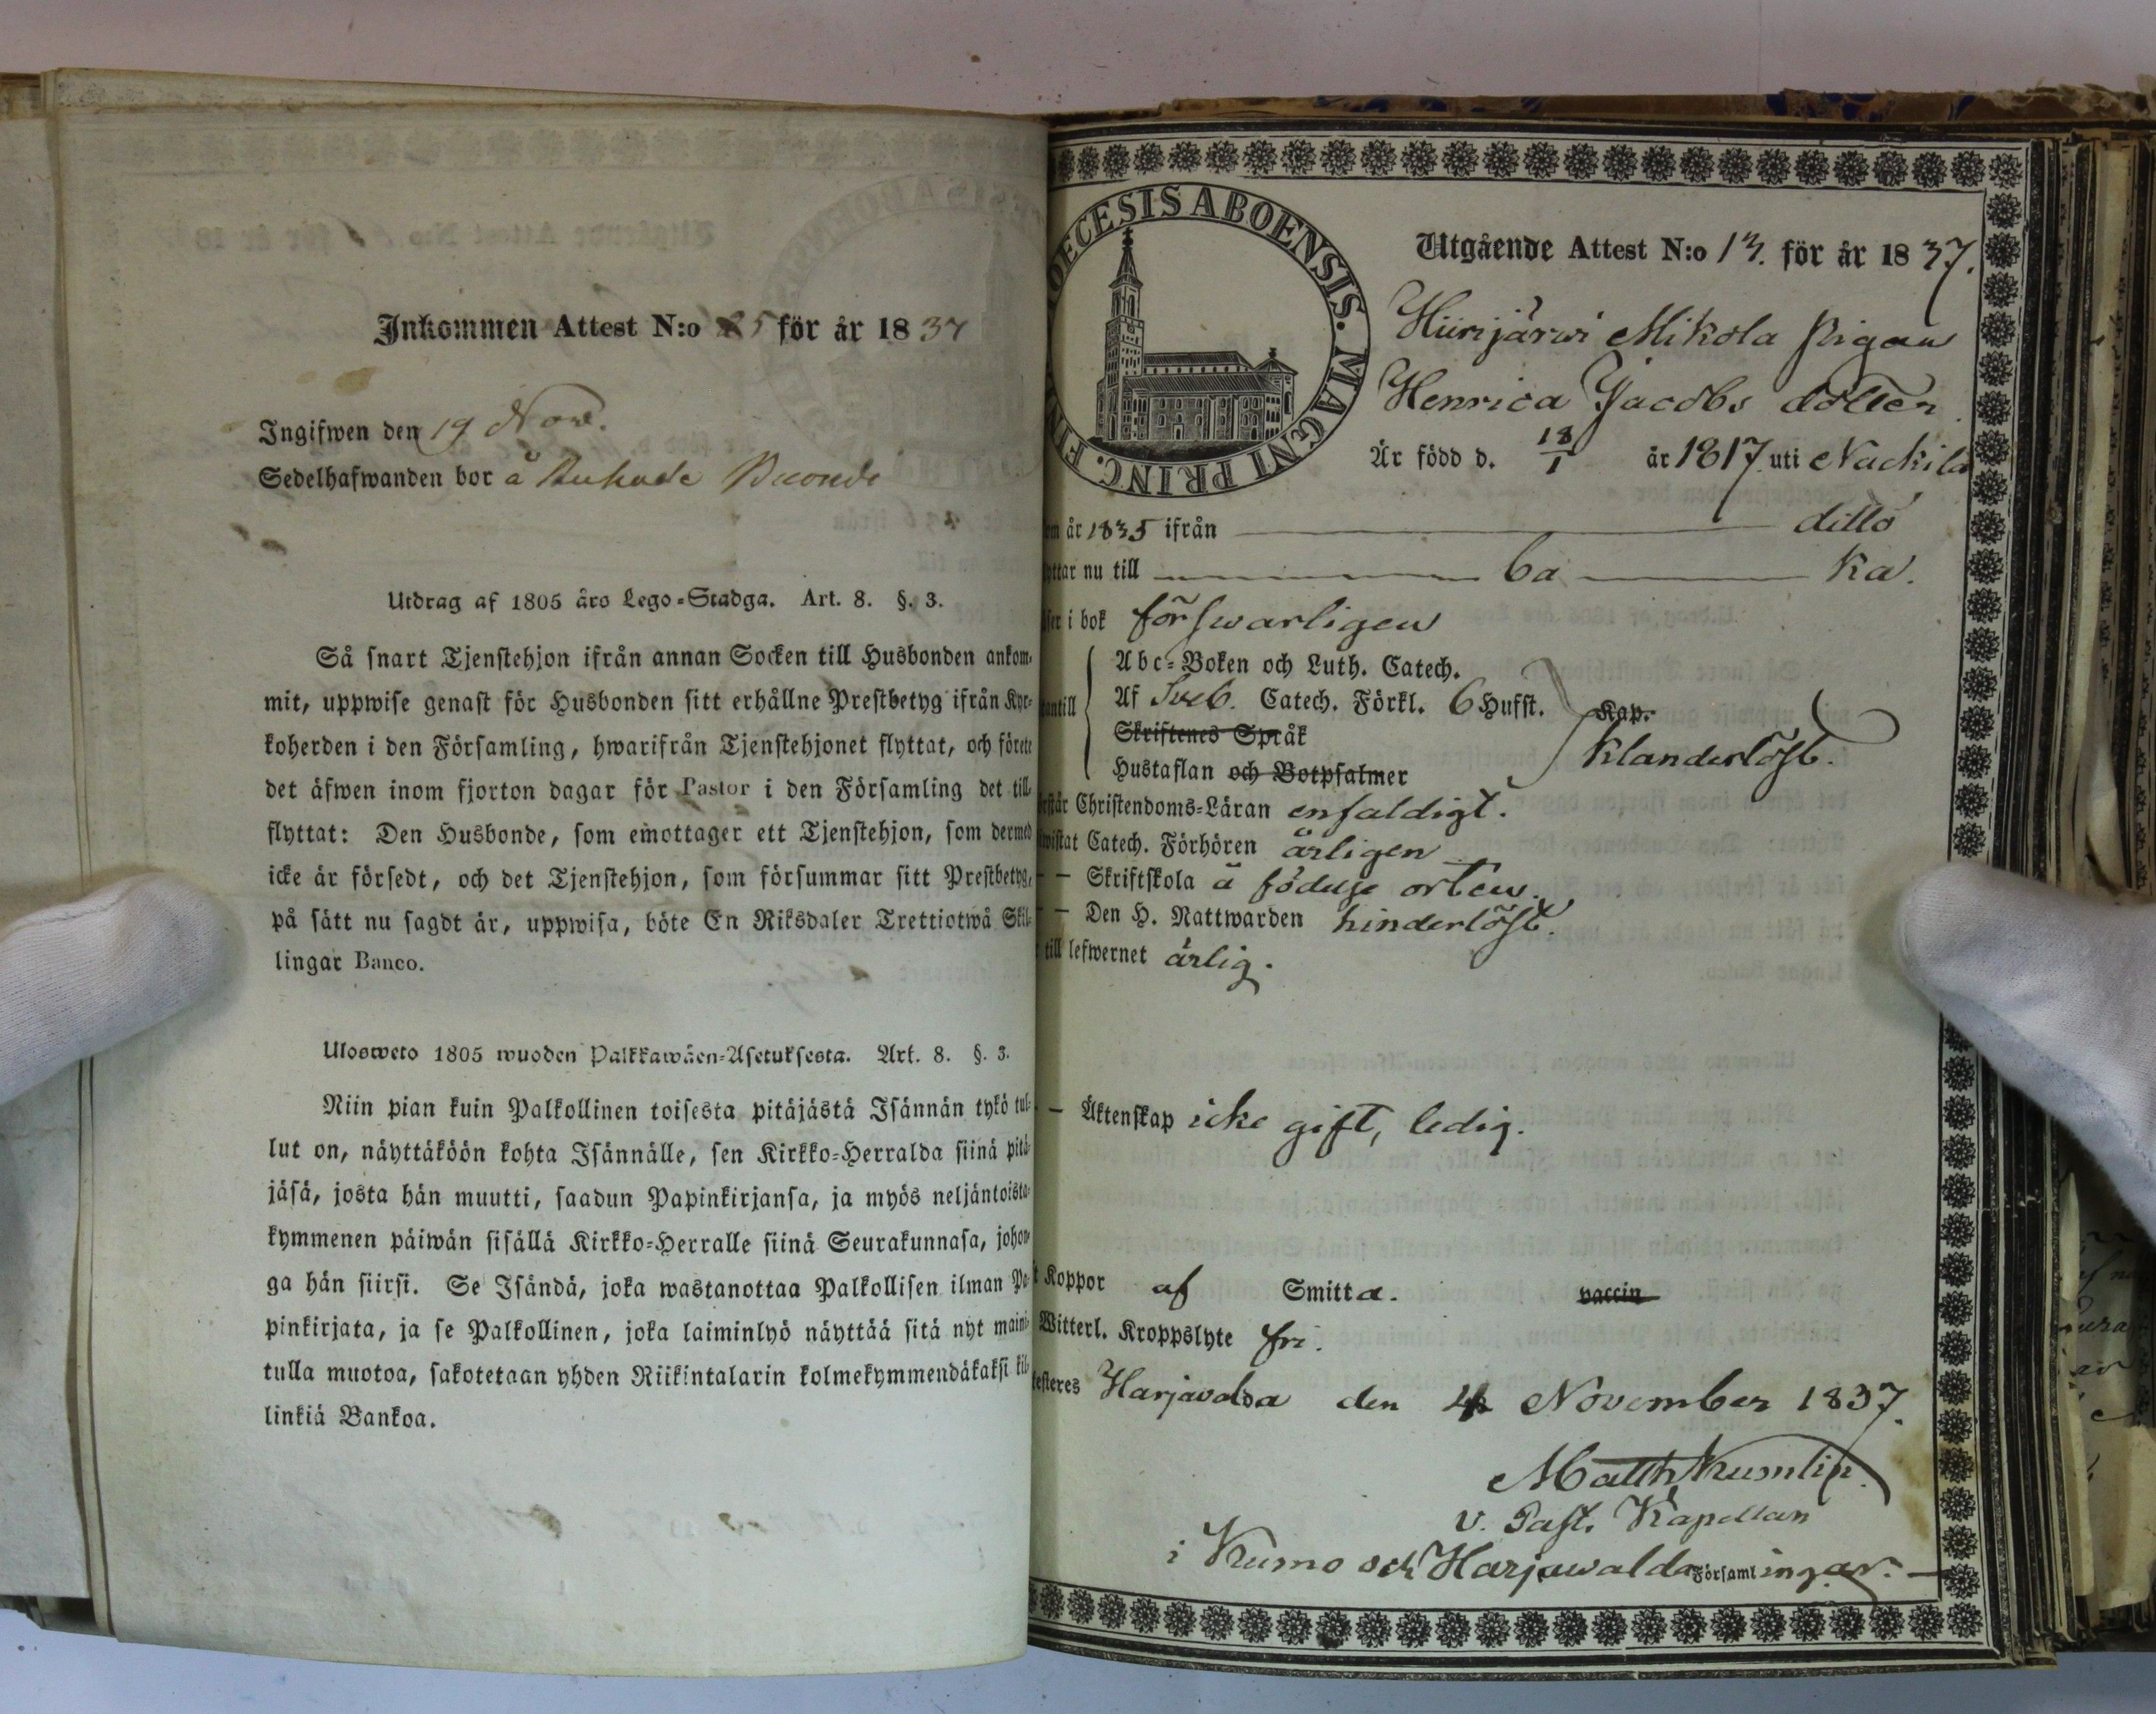 Inkommen Attest N:o 25 för år 1837
Ingifwen den 19 Nov.
Sedelhafwanden bor å
Utdrag af 1805 års Lego-Stadga. Art. 8. §. 3.
Så snart Tjenstehjon ifrån annan Socken till Husbonden ankom-
mit, uppwise genast för Husbonden sitt erhållne Prestbetyg ifrån Kyr-
koherden i den Församling, hwarifrån Tjenstehjonet flyttat, och förete
det äfwen inom fjorton dagar för Pastor i den Församling det till-
flyttat: Den Husbonde, som emottager ett Tjenstehjon, som dermed
icke är försedt, och det Tjenstehjon, som försummar sitt Prestbetyg,
på sätt nu sagdt är, uppwisa, böte En Riksdaler Trettiotwå Skil-
lingar Banco.
Ulosweto 1805 wuoden Palkkawäen-Asetuksesta. Art. 8. §. 3.
Niin pian kuin Palkollinen toisesta pitäjästä Isännän tykö tul-
lut on, näyttäköön kohta Isännälle, sen Kirkko-Herralda siinä pitä-
jäsä, josta hän muutti, saadun Papinkirjansa, ja myös neljäntoista-
kymmenen päiwän sisällä Kirkko-Herralle siinä Seurakunnasa, johon-
ga hän siirsi. Se Isändä, joka wastanottaa Palkollisen ilman Pa-
pinkirjata, ja se Palkollinen, joka laiminlyö näyttää sitä nyt maini-
tulla muotoa, sakotetaan yhden Riikintalarin kolmekymmendäkaksi kil-
linkiä Bankoa.
DIOECESIS ABOENSIS. MAGNI PRINC. FIN
Utgående Attest N:o 13. för år 1837.
Hiirijärwi Mikola pigan
Henrica Jacobs dotter
Är född d. 18/1 år 1817 uti Nackila
om år 1835 ifrån ditto
yttar nu till ba ka.
äser i bok förswarligen
antill
Abc-Boken och Luth. Catech.
Af Sveb. Catech. Förkl. 6 Hufst. Kap.
Skriftenes Språk
Hustaflan och Botpsalmer
klanderlöst.
rstår Christendoms-Läran enfaldigt.
wistat Catech. Förhören årligen
— Skriftskola å föduge orten.
— Den H. Nattwarden hinderlöst.
till lefwernet ärlig.
— Äktenskap icke gift, ledig.
t Koppor af Smitta. vaccin
Witterl. Kroppslyte fri.
testeres Harjavalda den 4 November 1837.
Matth Kumlin.
v. Past. Kapellan
i Kumo och Harjawalda Församlingar.